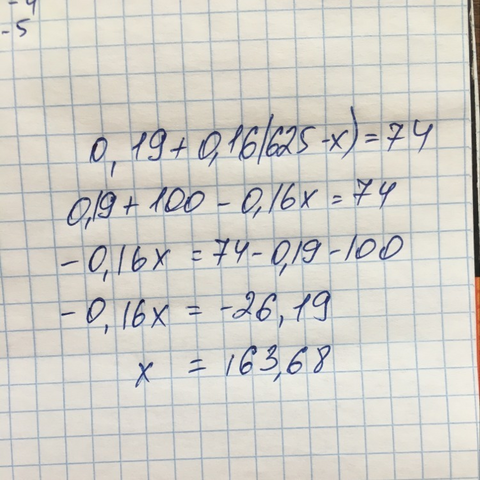 -4
-5
0,19+0,16(625-x)=74
0,19+100-0,16x=74
-0,16x=74-0,19-100
-0,16x=-26,19
x=163,68